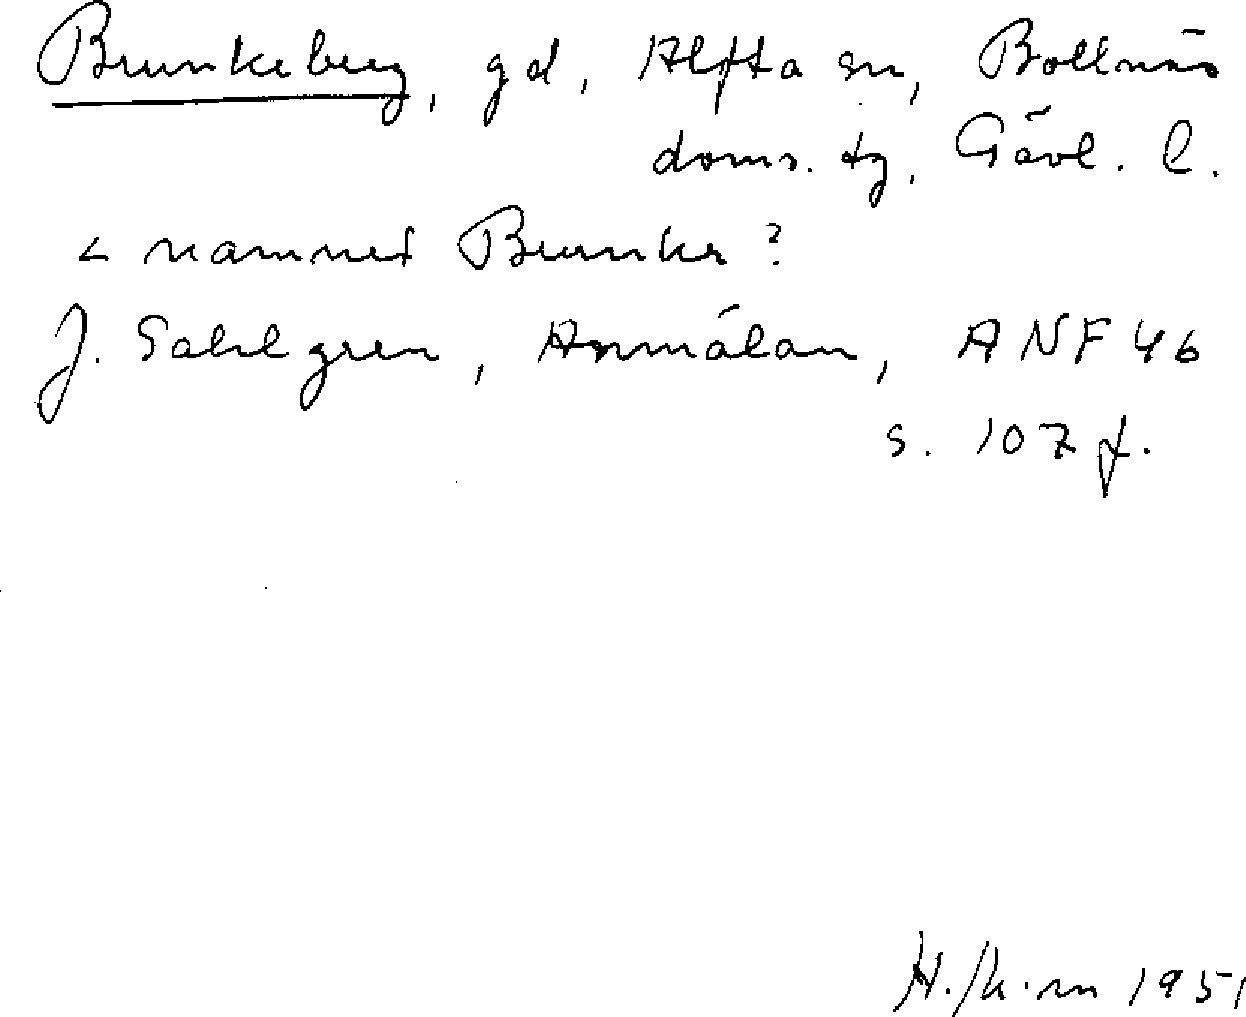 Brunkeberg, gd, Alfta sn, Bollnäs
doms. tg, Gävl. l.
< namnet Brunke?
J. Sahlgren, Anmälan, ANF 46
s. 107 f.
1951